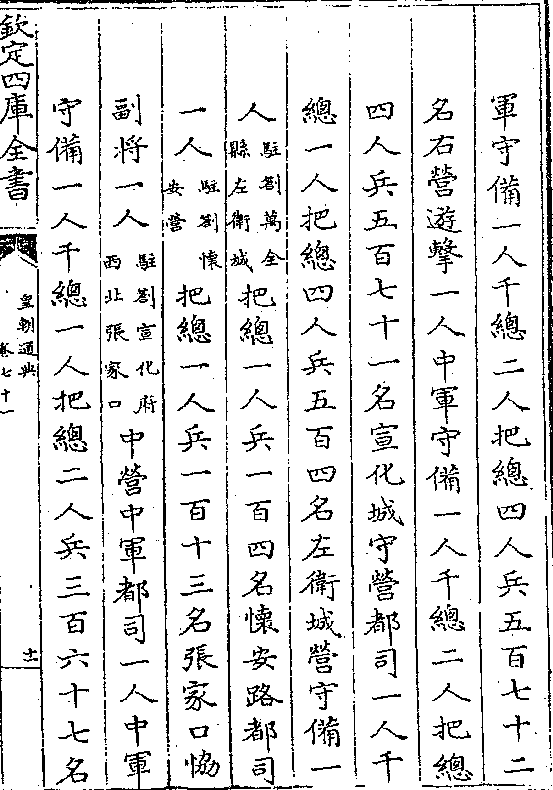 軍守備一人千總二人把總四人兵五百七十二
名右營遊擊一人中軍守備一人千總二人把總
四人兵五百七十一名宣化城守營都司一人千
總一人把總四人兵五百四名左衛城營守備一
人駐劄萬全縣左衛城把總一人兵一百四名懷安路都司
一人駐劄懷安營把總一人兵一百十三名張家口協
副將一人駐劄宣化府西北張家口中營中軍都司一人中軍
守備一人千總一人把總二人兵三百六十七名
欽定四庫全書
皇朝通典
卷七十一
十一